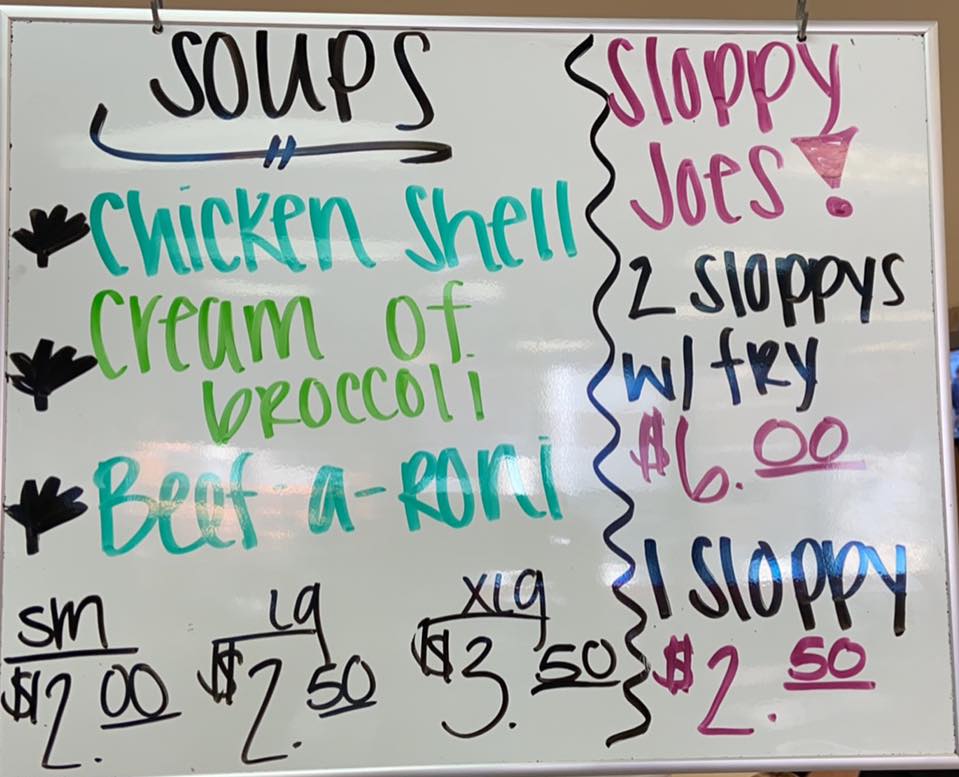 SOUPS
Chicken Shell
Cream of
broccoli
Beef-a-Roni
sm lg XLg
$2.00 $2.50 $3.50
Sloppy
Joes!
2 Sloppys
w/ fry
$6.00
1 Sloppy
$2.50